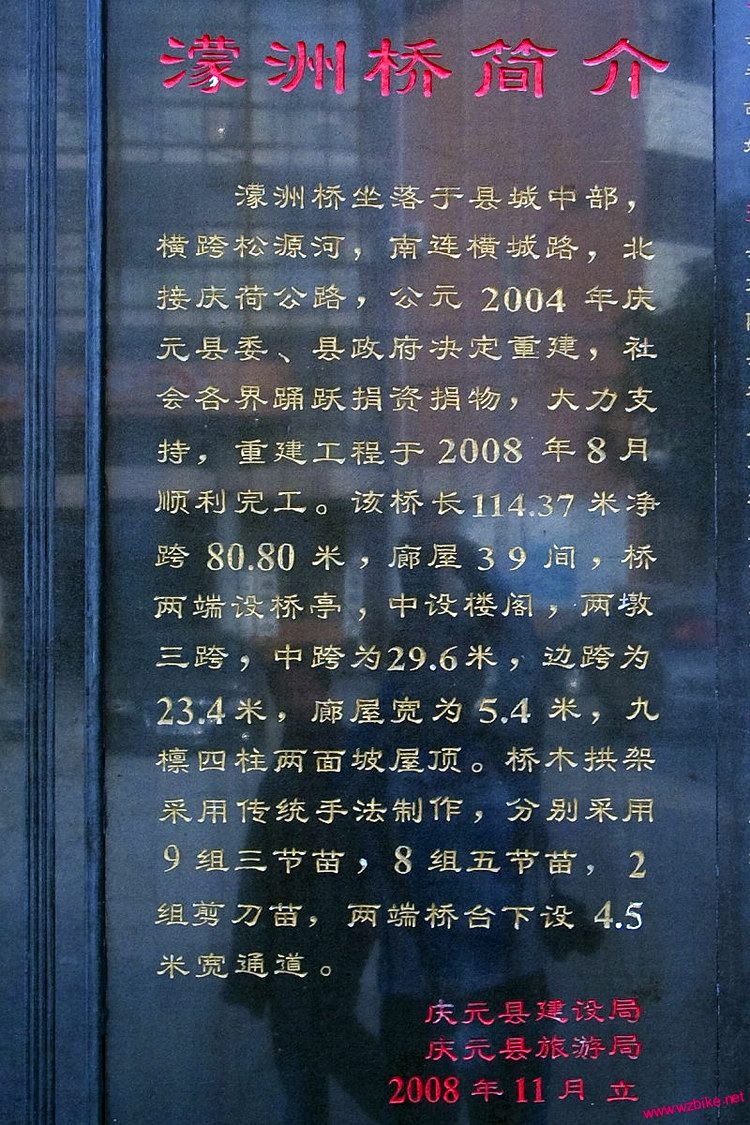 濛洲桥简介
濛洲桥坐落于县城中部，
横跨松源河，南连横城路，北
接庆荷公路，公元 2004 年庆
元县委、县政府决定重建，社
会各界踊跃捐资捐物，大力支
持，重建工程于 2008 年 8 月
顺利完工。该桥长114.37 米净
跨 80.80 米，廊屋 39 间，桥
两端设桥亭，中设楼阁，两墩
三跨，中跨为29.6米，边跨为
23.4米，廊屋宽为 5.4 米，九
檩四柱两面坡屋顶。桥木拱架
采用传统手法制作，分别采用
9 组三节苗，8 组五节苗，2
组剪刀苗，两端桥台下设 4.5
米宽通道。
庆元县建设局
庆元县旅游局
2008 年 11 月 立
www.wzbike.net